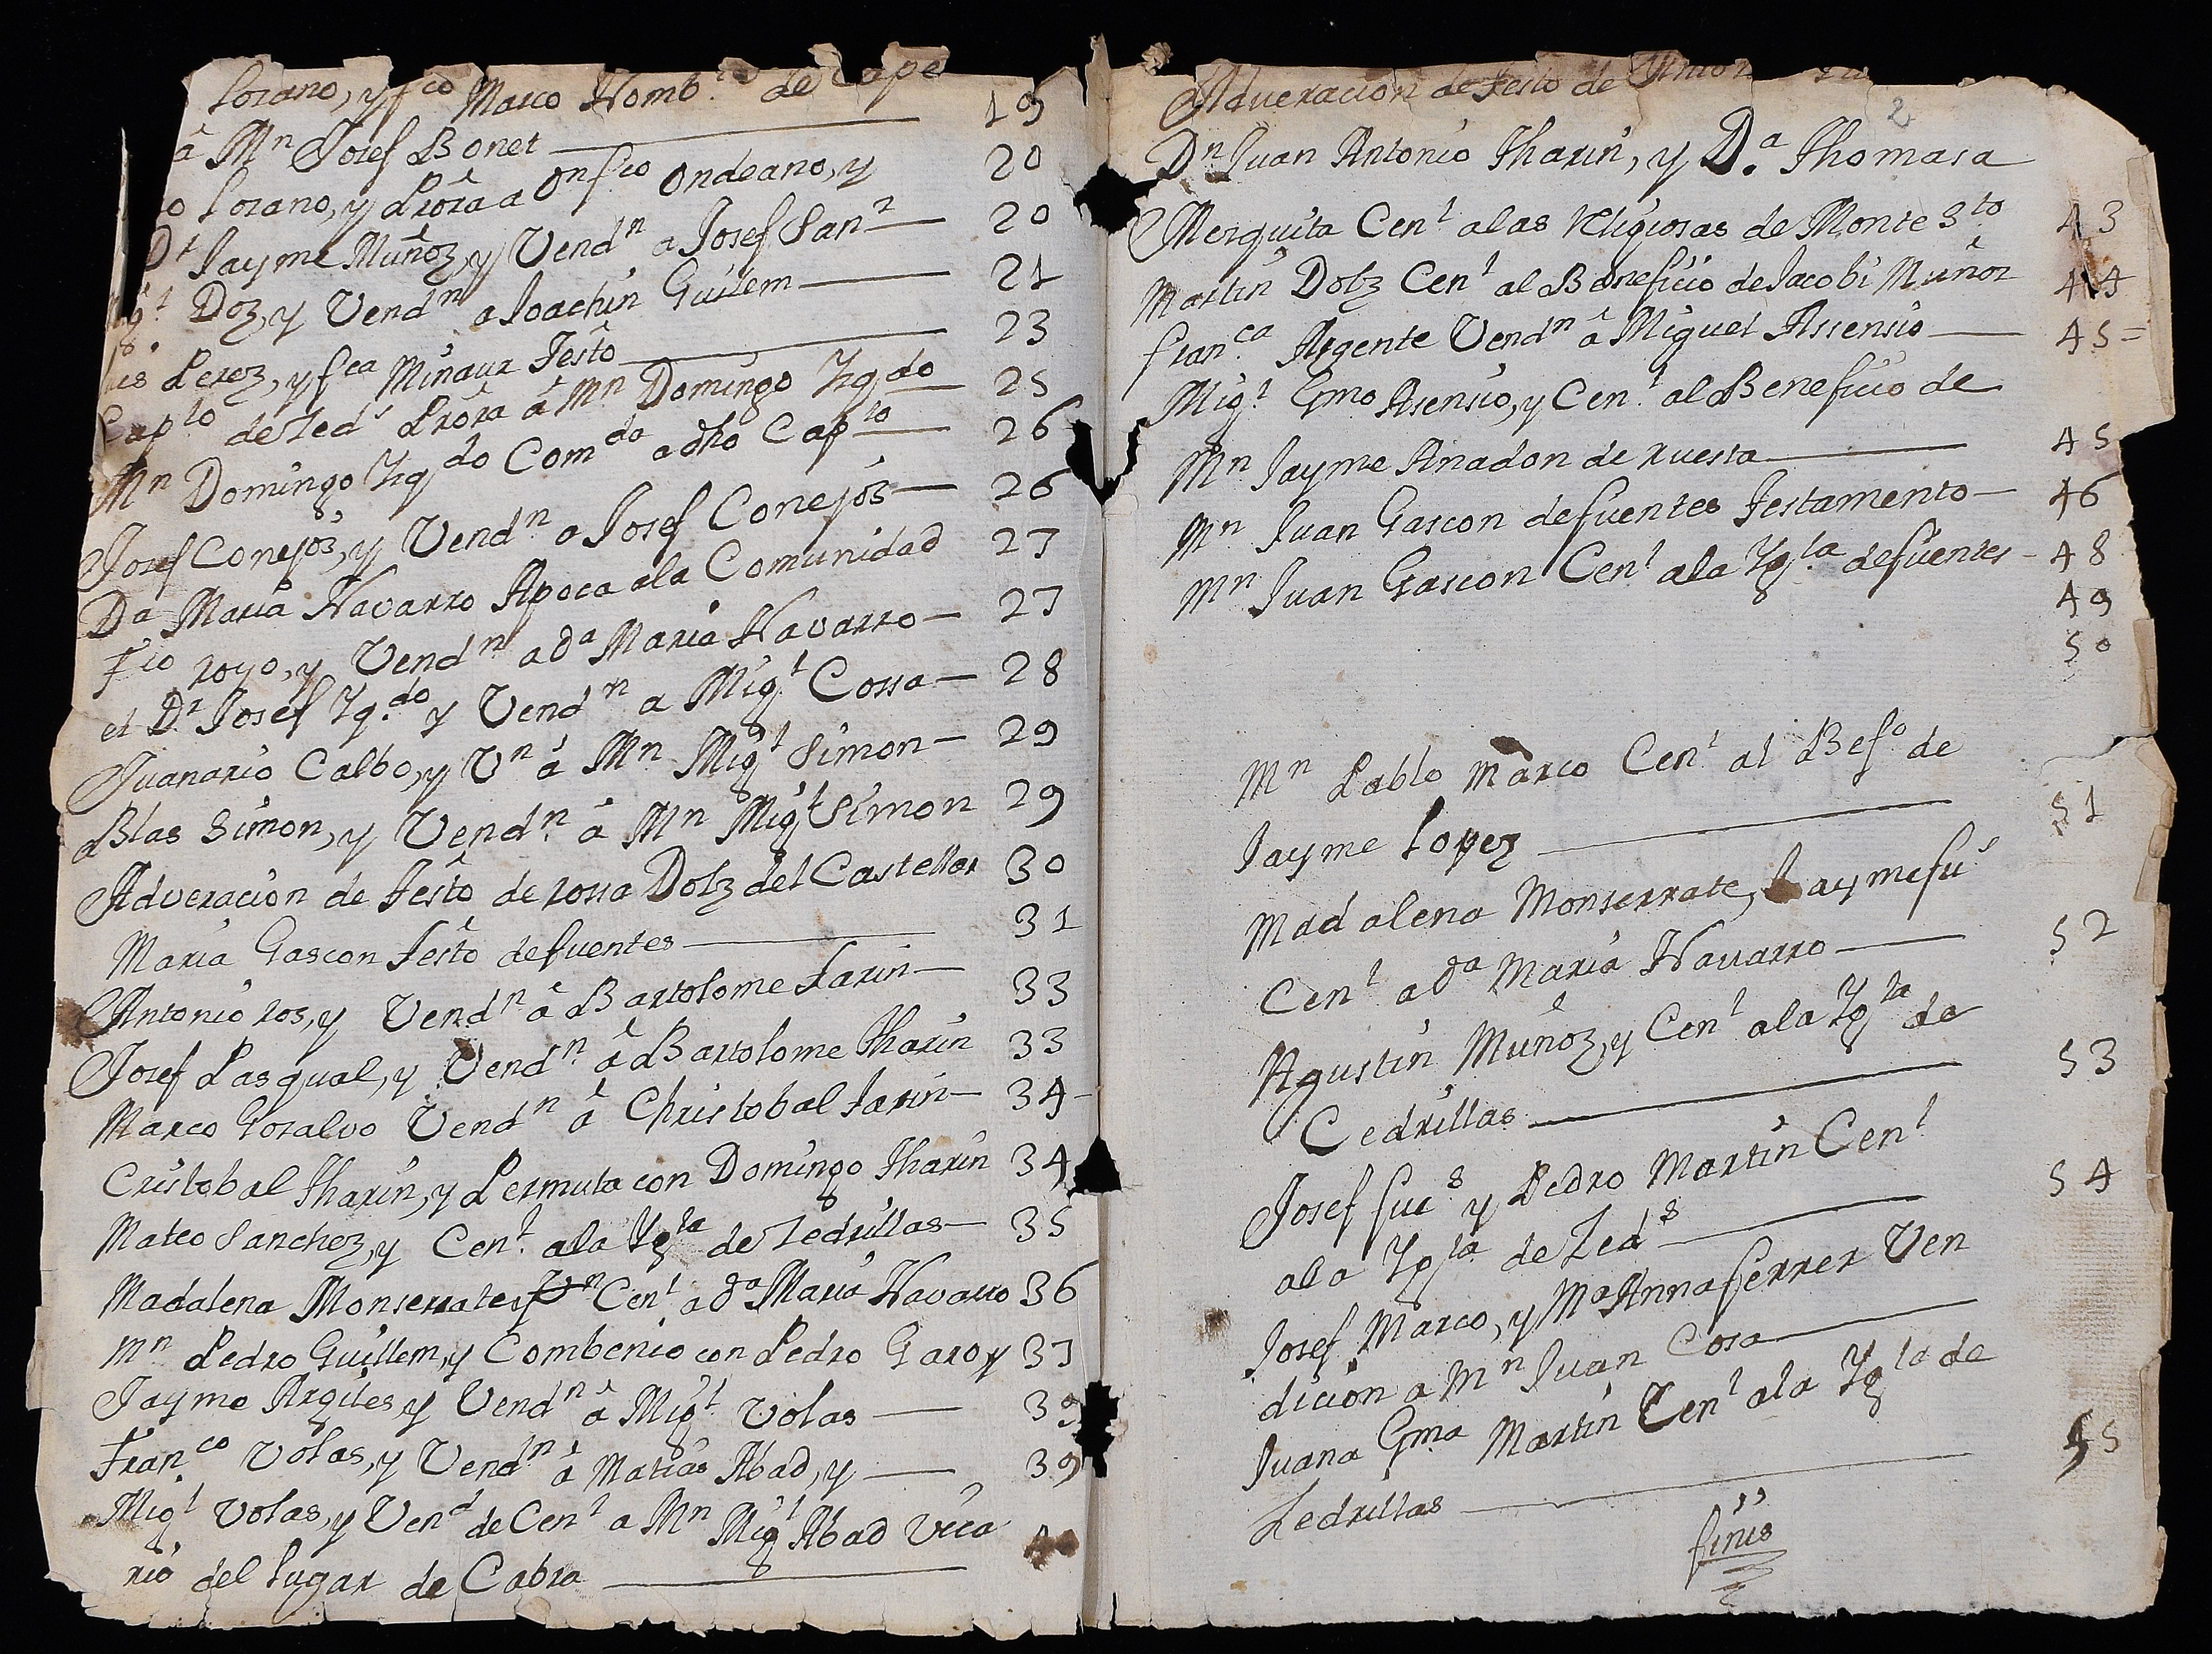 Lozano, y fco Marco Nomb.n de Cape
â Mn Josef Bonet — 19
Lozano, y Prôra a Onfrio Ondeano, y 20
Dr Jayme Muñoz, y Vendn a Josef Sanz — 20
Doz, y Vendn a Joachin Guillem — 21
Perez, y fca Minaur Testô — 23
Caplo de Zeds Prôra â Mn Domingo Yzqdo 25
Mn Domingo Yzqdo Comda a dho Caplo — 26
Josef Conejos, y Vendn a Josef Conejos — 26
Da Maria Navarro Apoca ala Comunidad 27
Fco royo, y Vendn a da Maria Navarro — 27
el Dr Josef Yzq.do y Vendn a Migl Cossa — 28
Juanario Calbo, y Vn â Mn Migl Simon — 29
Blas Simon, y Vendn â Mn Migl Simon 29
Adveracion de Testô de rossa Dolz del Castellar 30
Maria Gascon Testô defuentes — 31
Antonio ros, y Vendn â Bartolome Tarin — 33
Josef Pasqual, y Vendn â Bartolome Tharin 33
Marco Gosalvo Vendn â Christobal Tarin — 34-
Cristobal Tharin, y Permuta con Domingo Tharin 34
Mateo Sanchez, y Cenl ala Ygla de Zedrillas — 35
Madalena Monserrate, y Vn Cenl a da Maria Navarro 36
Mn Pedro Guillem, y Combenio con Pedro Garoy 37
Jayme Argiles y Vendn â Migl Volas — 39
Fran.co Volas, y Vendn â Matias Abad, y — 39
Migl Volas, y Vend de Cenl a Mn Migl Abad Vica
rio del Lugar de Cabra — 4
Adveracion de Testô de
2
Dn Juan Antonio Tharin, y D.a Thomasa
Mezquita Cenl alas Religiosas de Monte Sto 43
Martin Dolz Cenl al Beneficio de Jacobi Muñoz 44
fran.ca Argente Vendn â Miguel Assensio — 45=
Mig.l Gmo Asensio, y Cenl al Beneficio de
Mn Jayme Anadon de ruesta — 45
Mn Juan Gascon defuentes Testamento — 46
Mn Juan Gascon Cenl ala Yg.la defuentes - 48
49
50
Mn Pablo Marco Cenl al Befo de
Jayme Lopez — 51
Madalena Monserrate, Jayme fus
Cenl a da Maria Navarro — 52
Agustin Muñoz, y Cenl ala Ygla de
Cedrillas — 53
Josef fues y Pedro Martin Cenl
ala Ygla de Zeds — 54
Josef Marco, y Ma Anna ferrer Ven
dicion a Mn Juan Cosa —
Juana Gma Martin Cenl ala Ygla de
Zedrillas — 55
finis